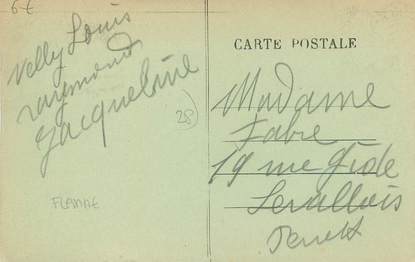 6€
Nelly Louis
raymond
Jacqueline
28
FLAMME
CARTE POSTALE
Madame
Fabre
19 rue Gide
Levallois
Perret